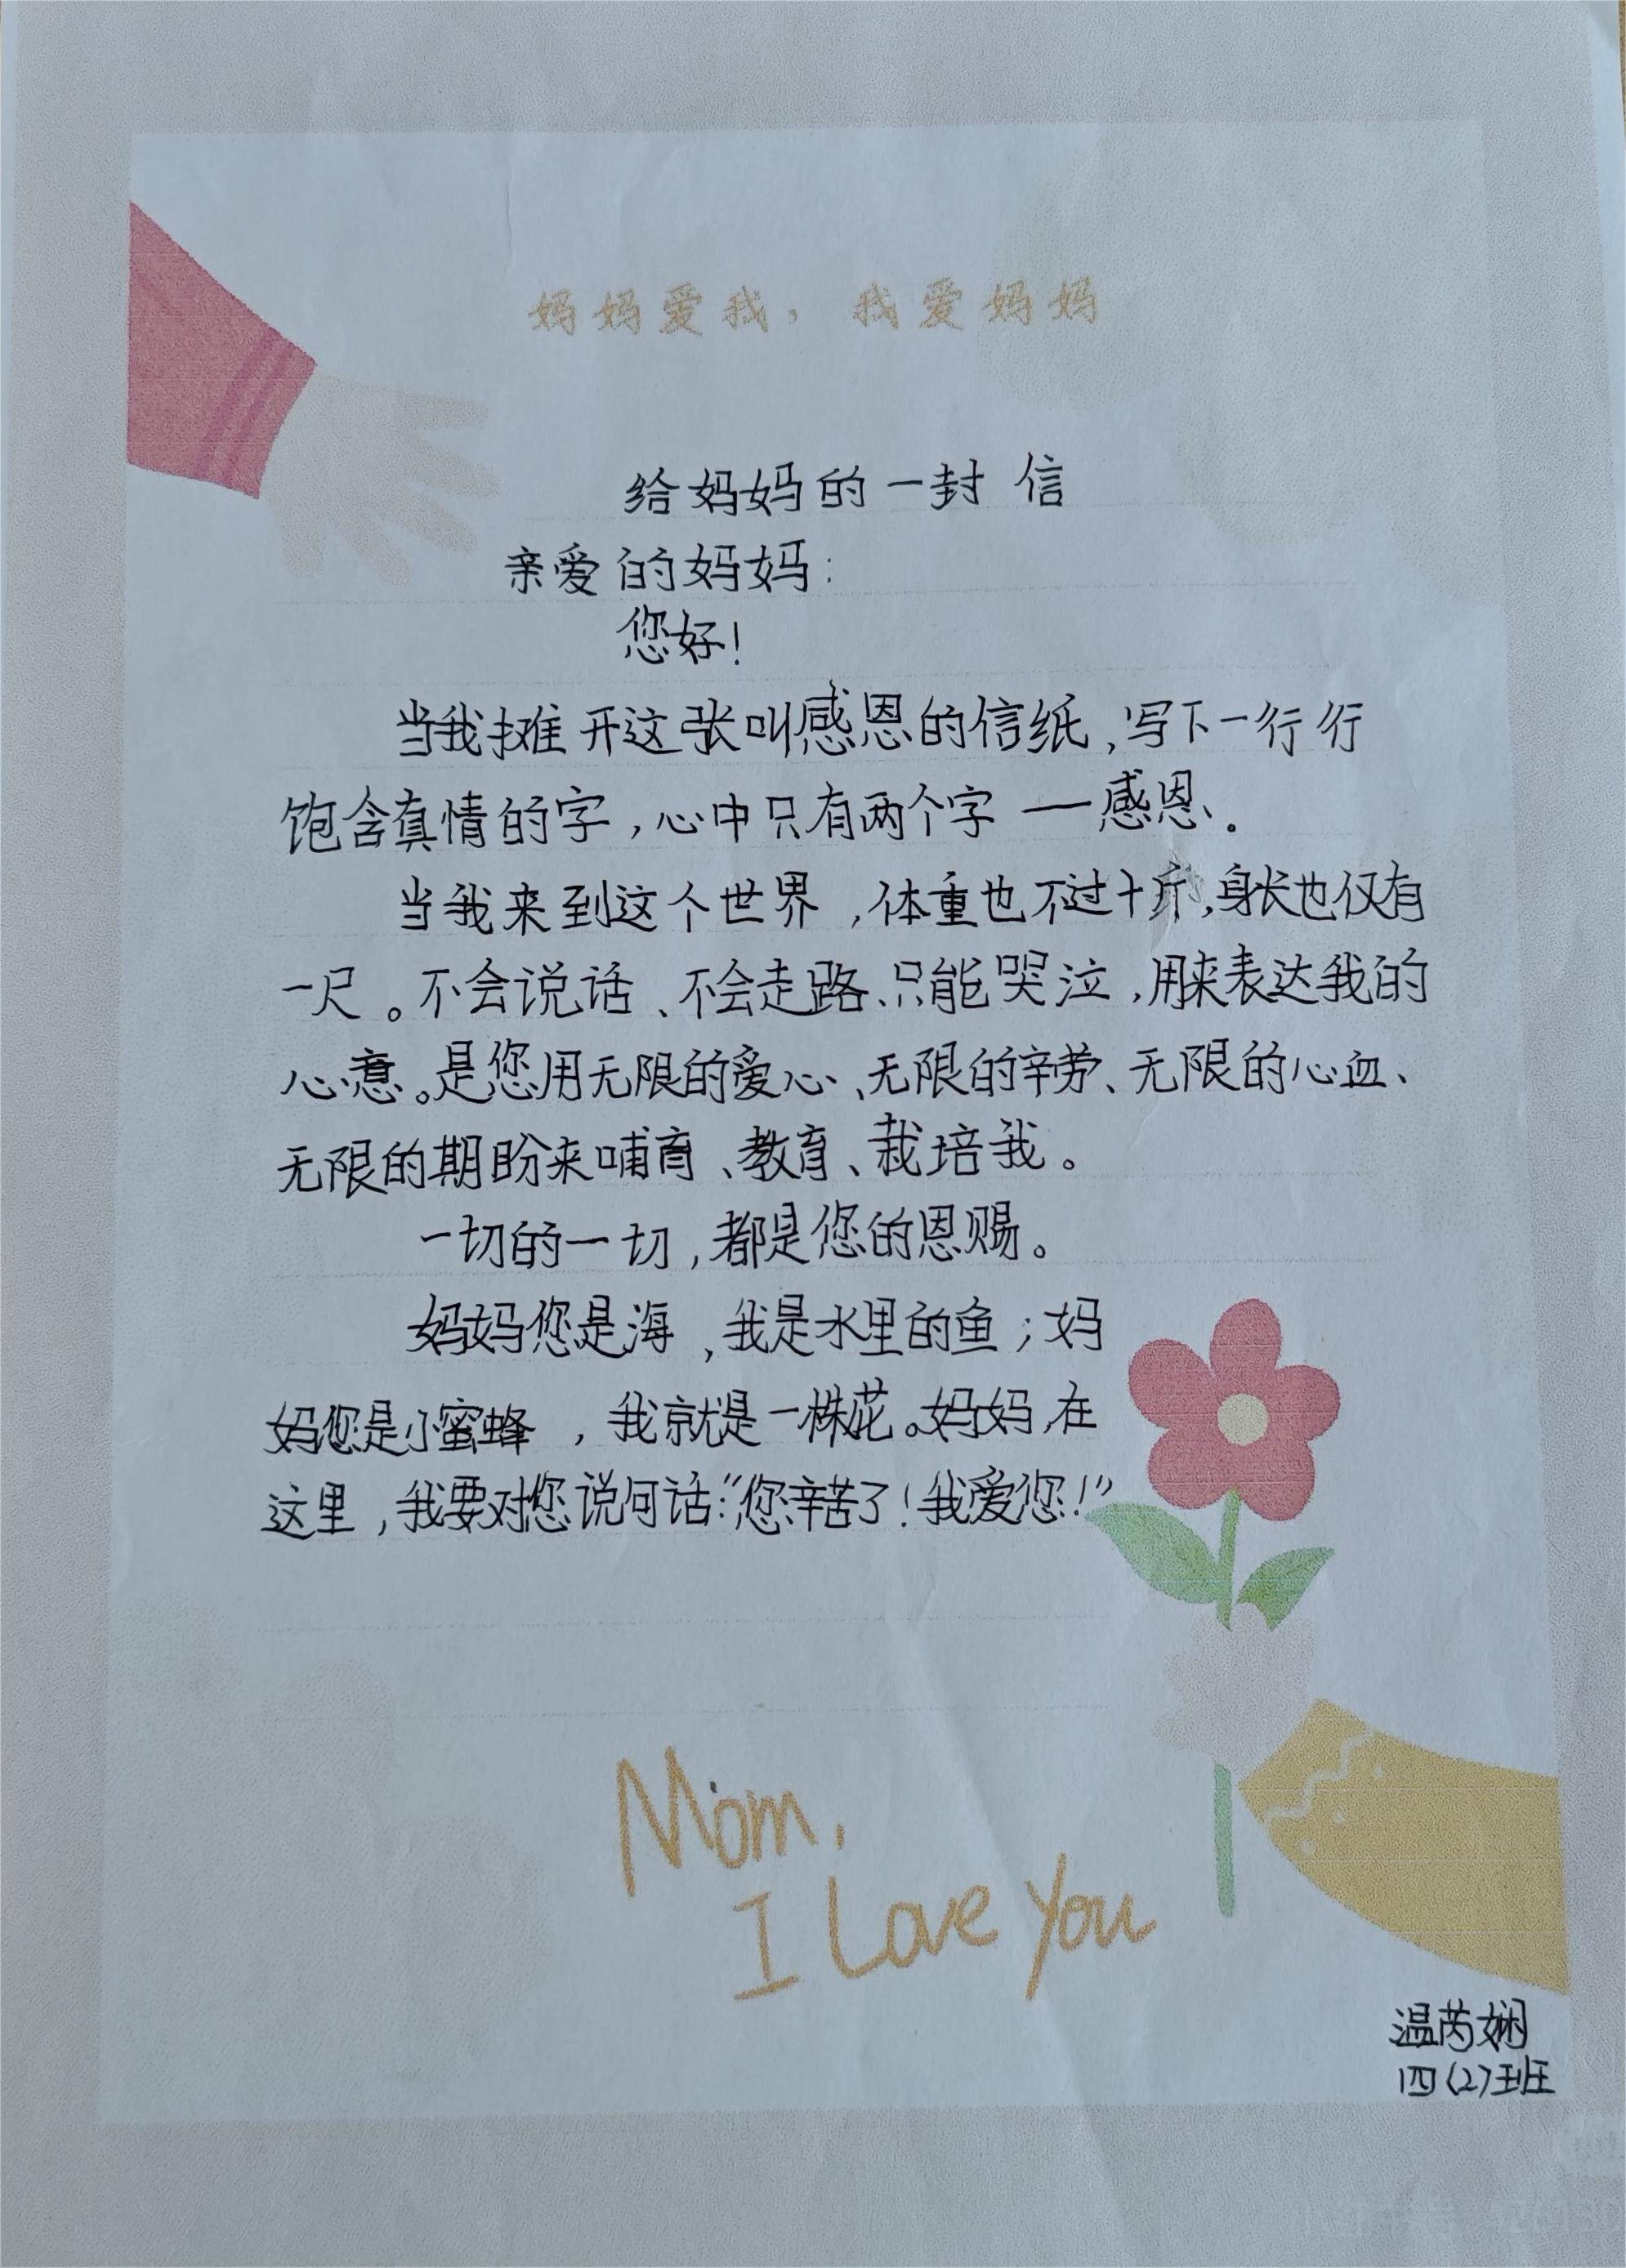 妈妈爱我，我爱妈妈
给妈妈的一封信
亲爱的妈妈：
您好！
当我摊开这张叫感恩的信纸，写下一行行
饱含真情的字，心中只有两个字——感恩。
当我来到这个世界，体重也不过十斤，身长也仅有
一尺。不会说话、不会走路、只能哭泣，用来表达我的
心意。是您用无限的爱心、无限的辛劳、无限的心血、
无限的期盼来哺育、教育、栽培我。
一切的一切，都是您的恩赐。
妈妈您是海，我是水里的鱼；妈
妈您是小蜜蜂，我就是一株花。妈妈，在
这里，我要对您说何话：“您辛苦了！我爱您！”
Mom,
I Love You
温芮娴
四（2）班